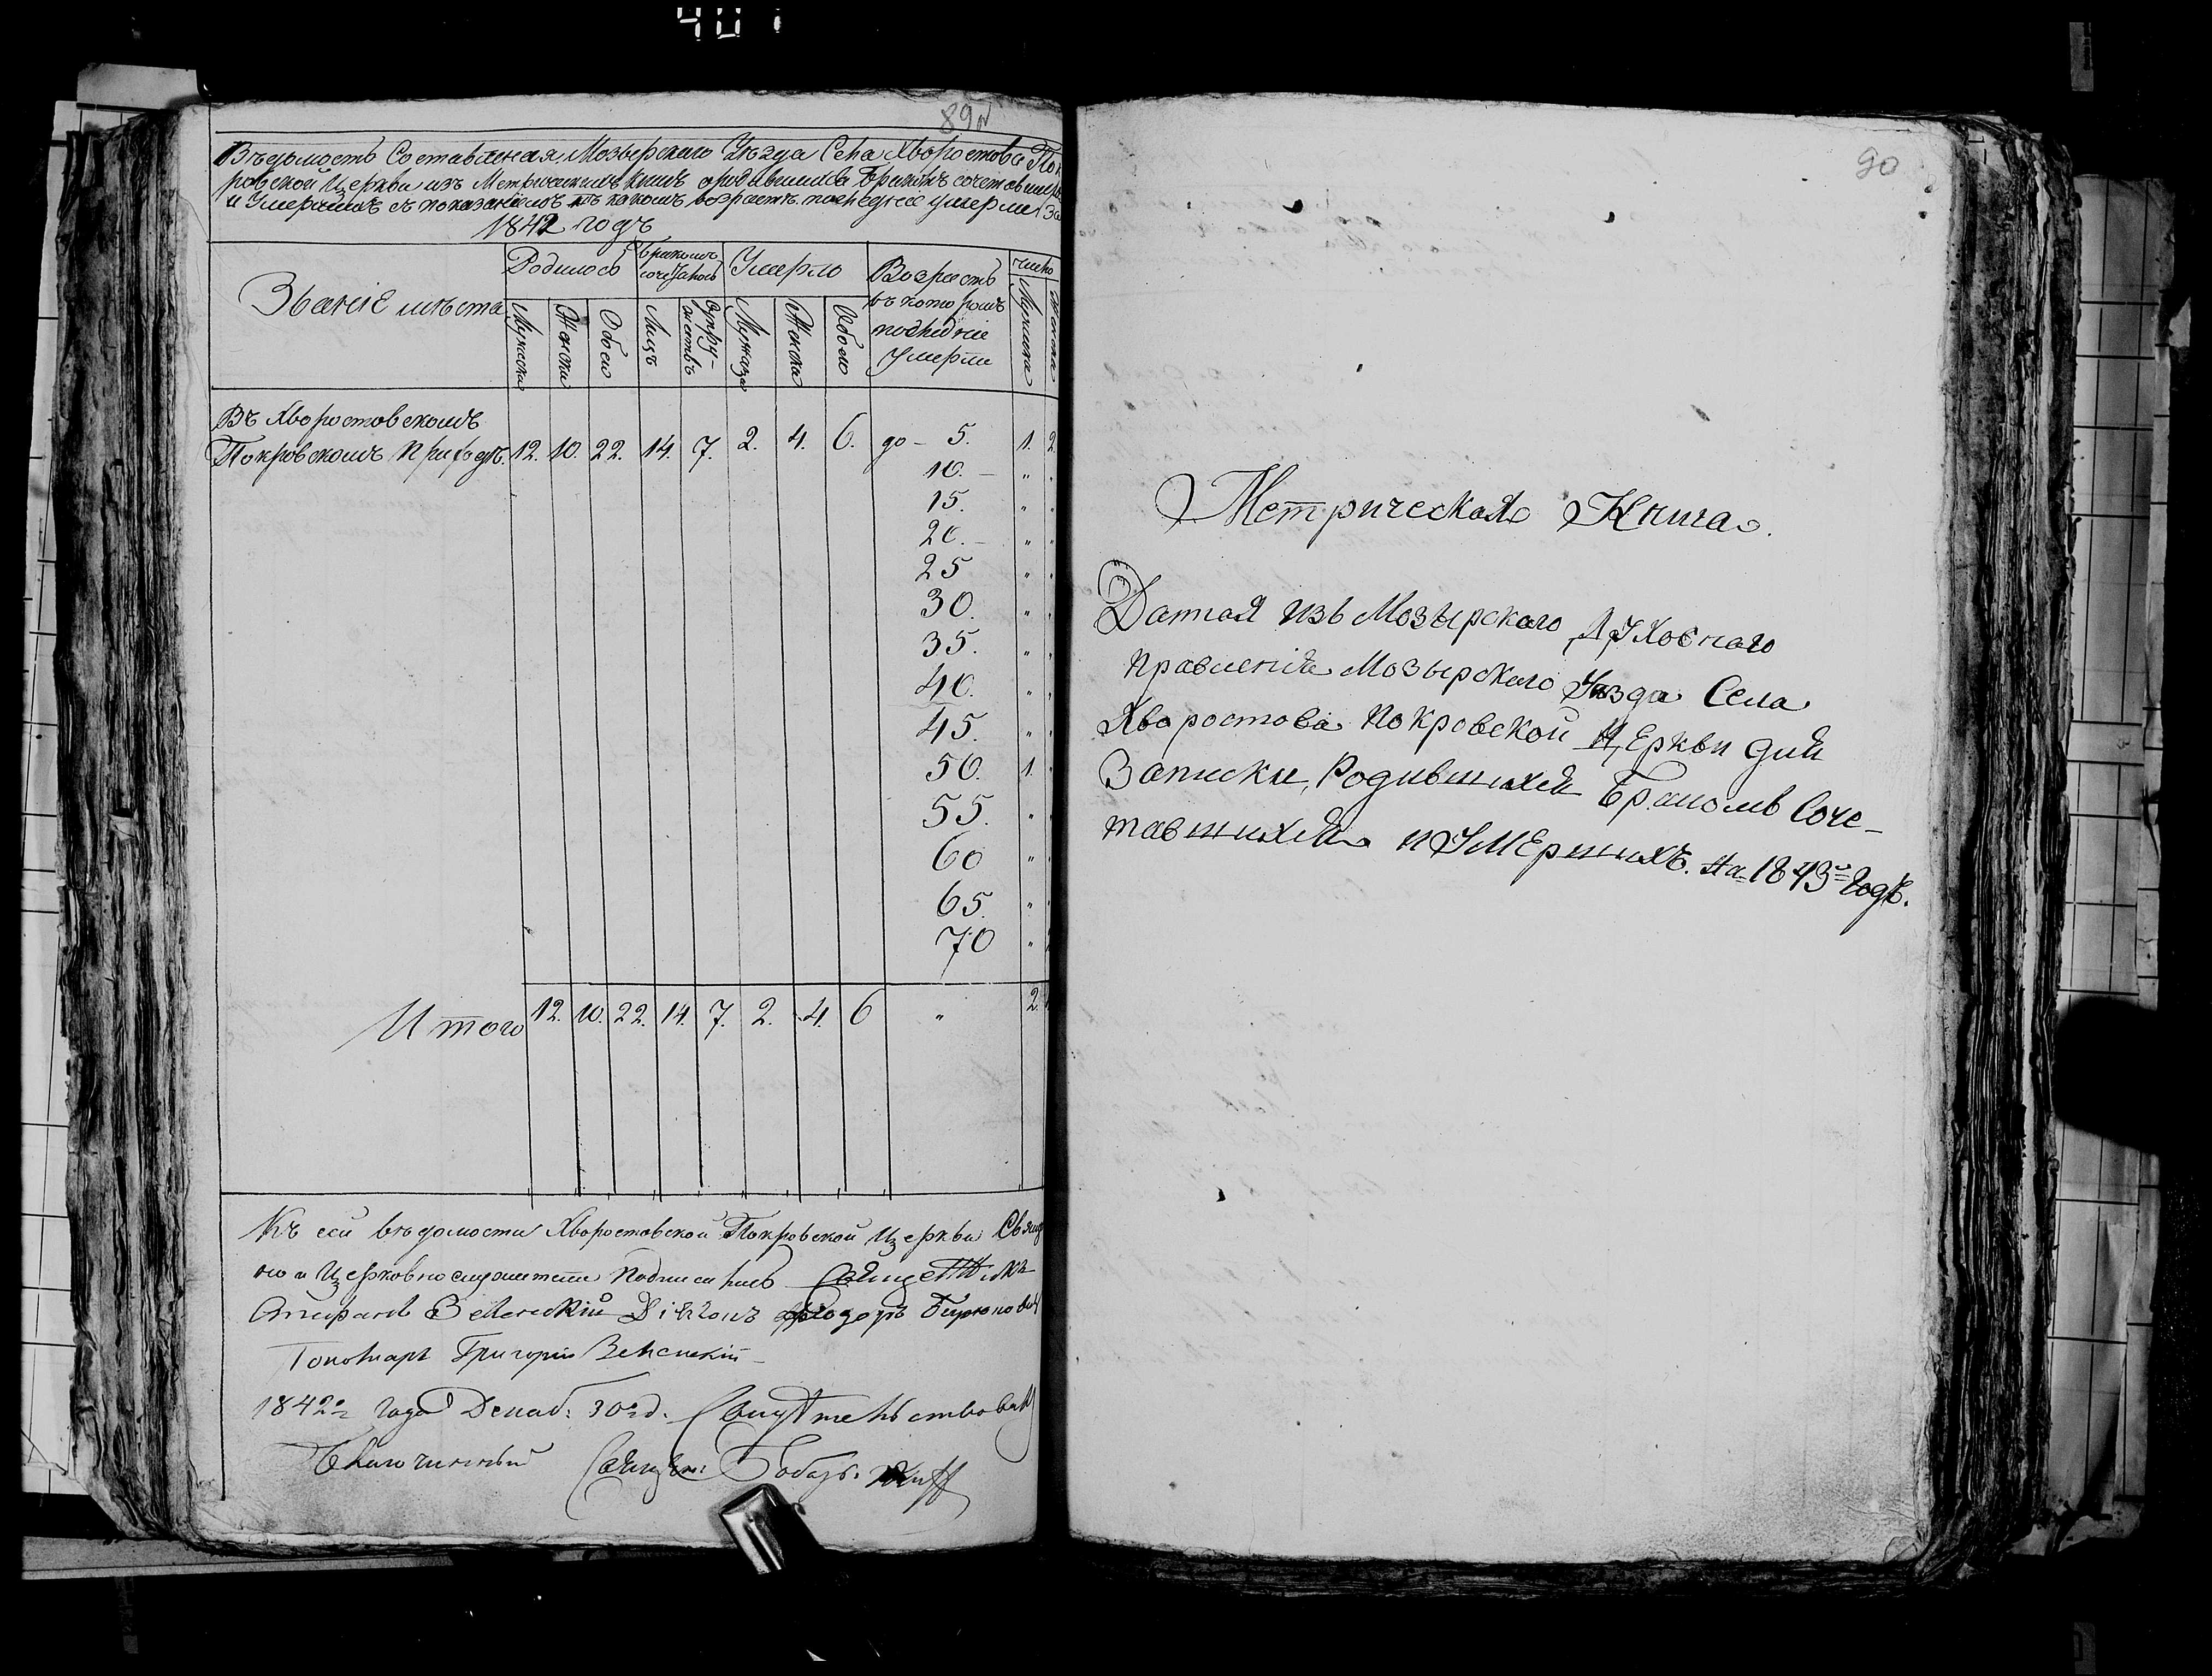 401
89
Вѣдомость Составленая Мозырскаго Уѣзда Села Хворостова Пок
ровской Церкви изъ Метрическихъ книгъ о родившихся бракомъ сочетавшихся
и Умершихъ съ показаніемъ въ какомъ возрастѣ последнее умерли За
1842 годъ
Званіе мѣста
Родилось
бракомъ сочеталось
Умерло
Возрастъ въ которомъ последніе Умерли
число
Мужеска
Женска
Обоего
Лицъ
Супружествъ
Мужеска
Женска
Обоего
Мужеска
Женска
Въ Хворостовскомъ
Покровскомъ Приходѣ. 12. 10. 22. 14. 7. 2. 4. 6. до – 5. 1. 2
10. – „
15. „
20. – „
25 „
30. „
35. „
40. „
45. „
50. 1.
55. „
60 „
65. „
70 „
Итого 12. 10. 22. 14. 7. 2. 4. 6 „ 2.
Къ сей вѣдомости Хворостовской Покровской Церкви Свящ
но и Церковнослужители Подписались Священникъ
Зеленскій Діаконъ Ѳеодоръ
Пономарь Григорій Зенскій
1842г года Декаб: 30 д. Свидѣтельствовалъ
Благочинный Священ:
90
Метрическая Книга.
Данная изъ Мозырскаго Духовнаго
Правленія Мозырскаго Уѣзда Села
Хворостова Покровской Церкви для
Записки, Родившихся Бракомъ Соче-
тавшихся и УМЕршихъ. На 1843й Годъ.